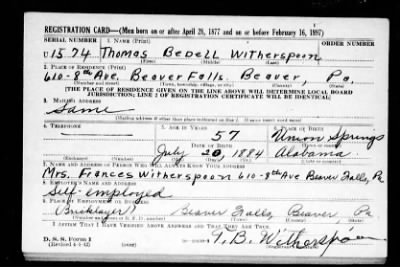 REGISTRATION CARD—(Men born on or after April 28, 1877 and on or before February 16, 1897)
SERIAL NUMBER 1. NAME (Print) ORDER NUMBER
U 1574 Thomas Bedell Witherspoon
(First) (Middle) (Last)
2. PLACE OF RESIDENCE (Print)
610-8th Ave. Beaver Falls. Beaver, Pa.
(Number and street) (Town, township, village, or city) (County) (State)
[THE PLACE OF RESIDENCE GIVEN ON THE LINE ABOVE WILL DETERMINE LOCAL BOARD
JURISDICTION; LINE 2 OF REGISTRATION CERTIFICATE WILL BE IDENTICAL]
3. MAILING ADDRESS
Same
[Mailing address if other than place indicated on line 2. If same insert word same]
4. TELEPHONE 5. AGE IN YEARS 6. PLACE OF BIRTH
57 Union Springs
DATE OF BIRTH (Town or county)
July 20, 1884 Alabama
(Exchange) (Number) (Mo.) (Day) (Yr.) (State or country)
7. NAME AND ADDRESS OF PERSON WHO WILL ALWAYS KNOW YOUR ADDRESS
Mrs. Frances Witherspoon 610-8th Ave Beaver Falls, Pa
8. EMPLOYER'S NAME AND ADDRESS
Self-employed
9. PLACE OF EMPLOYMENT OR BUSINESS
(Bricklayer) Beaver Falls, Beaver, Pa
(Number and street or R. F. D. number) (Town) (County) (State)
I AFFIRM THAT I HAVE VERIFIED ABOVE ANSWERS AND THAT THEY ARE TRUE.
D. S. S. Form 1
(Revised 4-1-42) T. B. Witherspoon